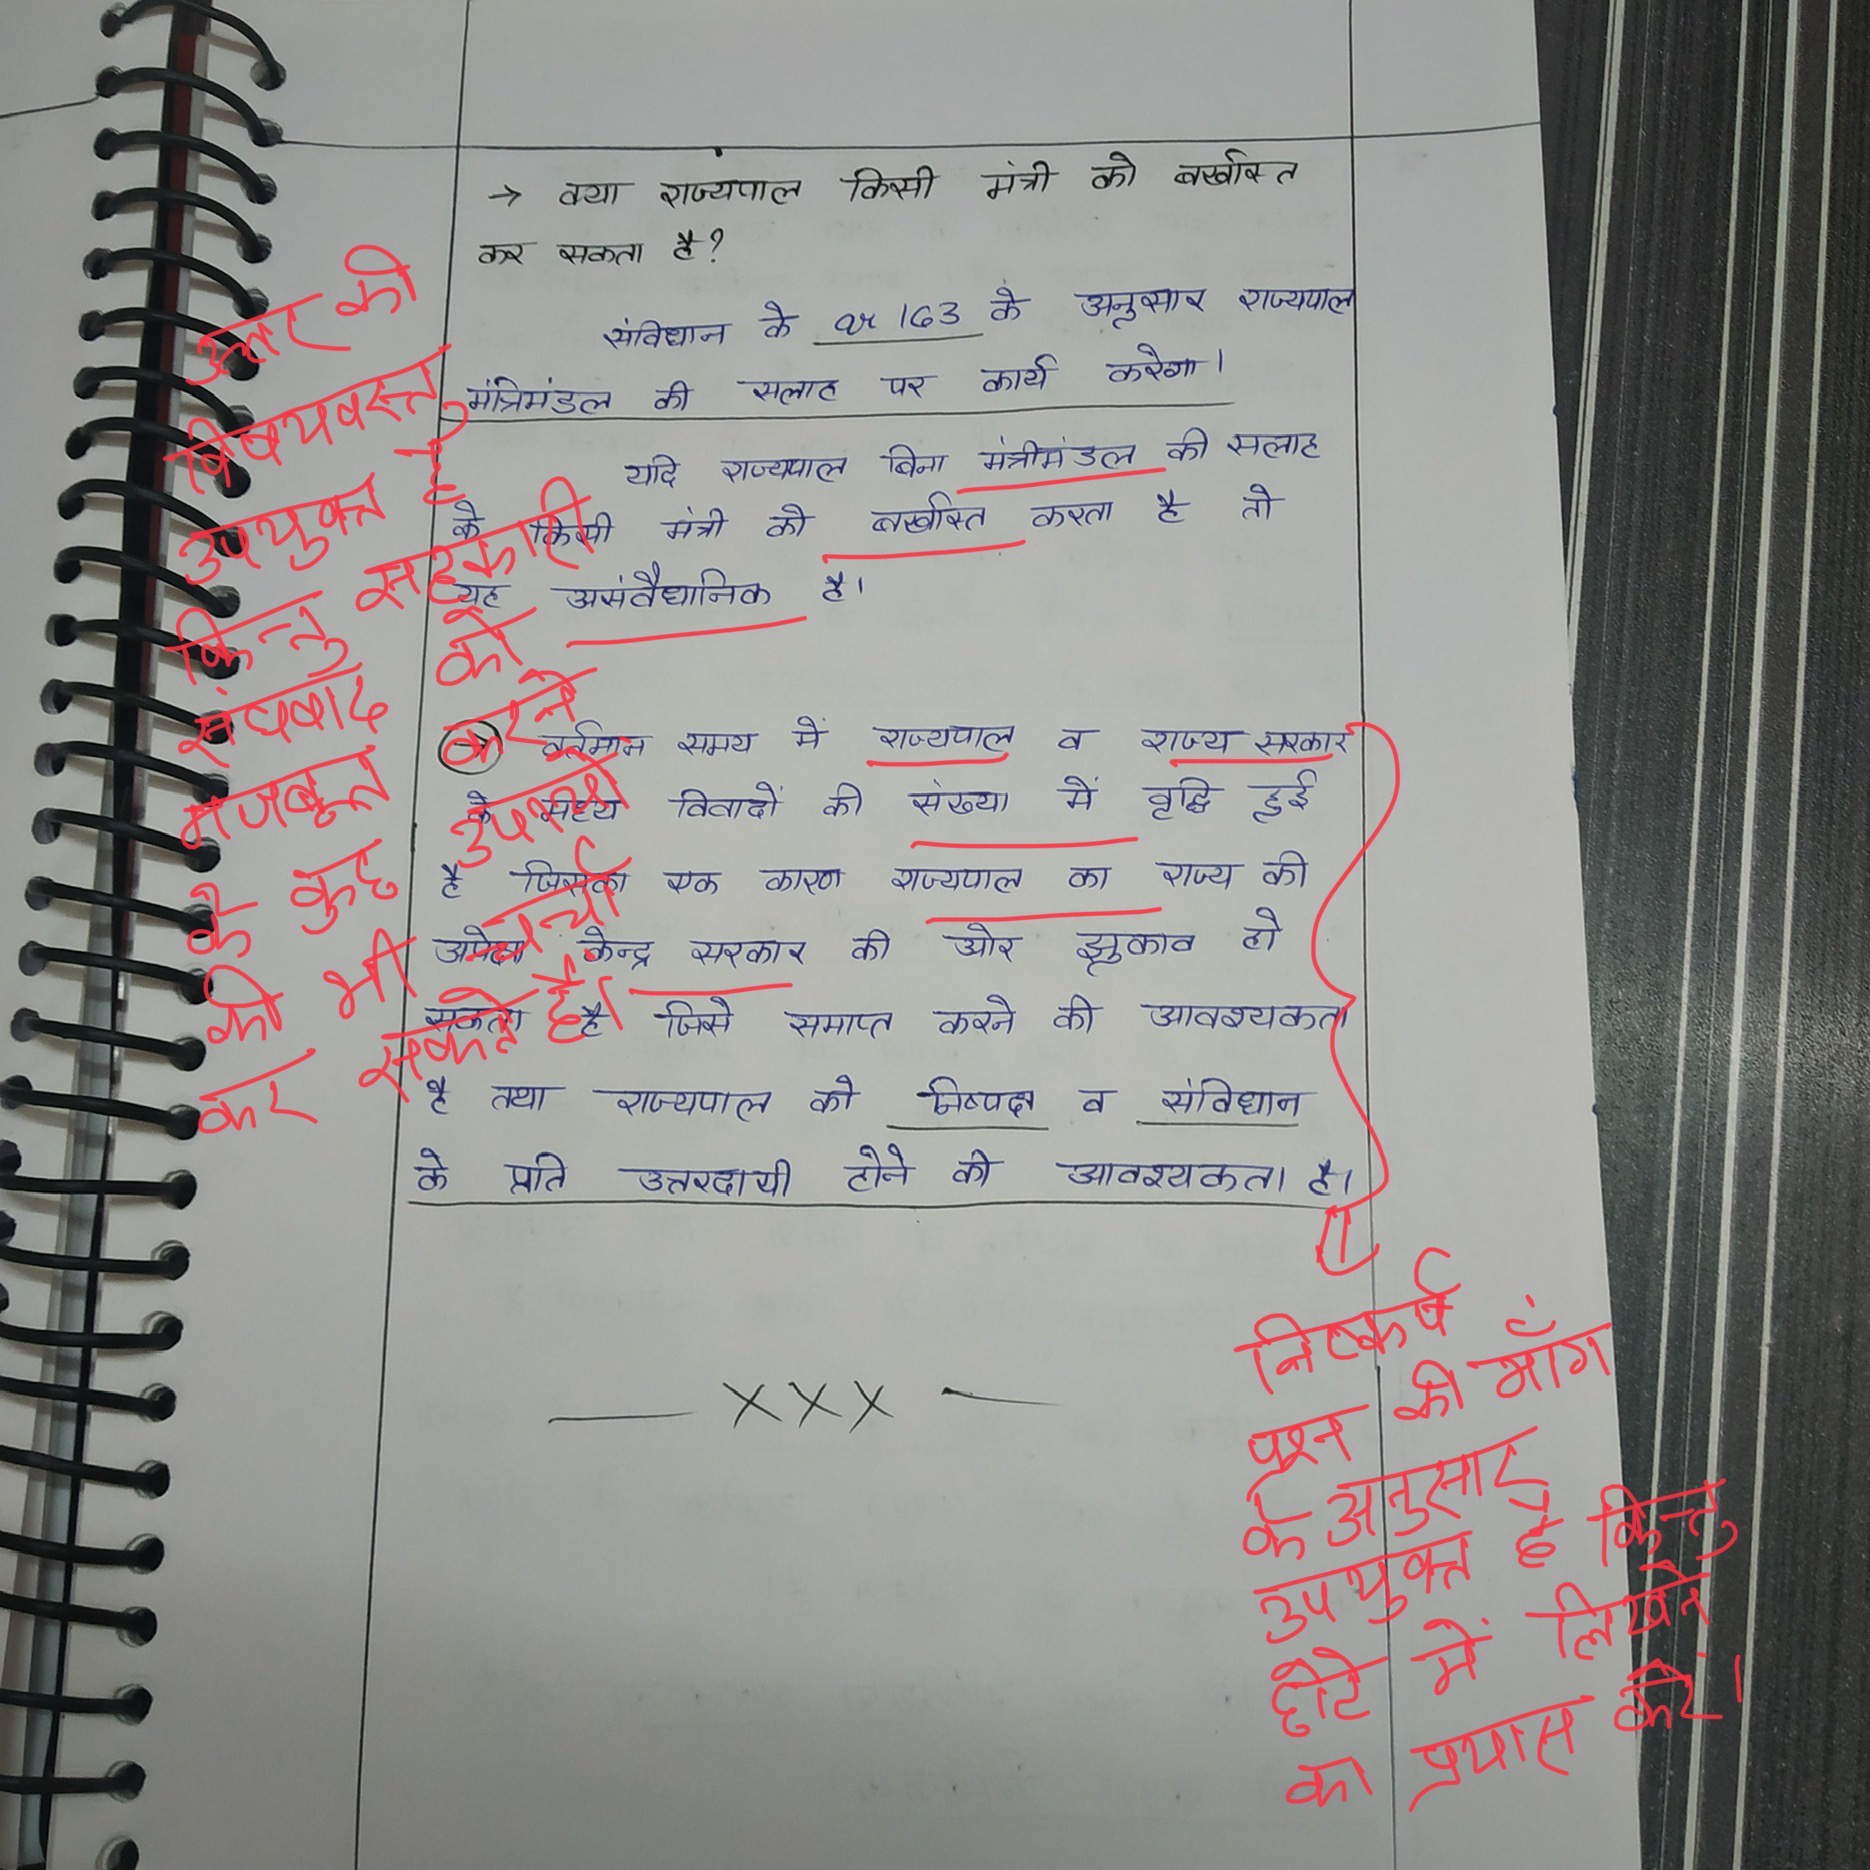 → क्या राज्यपाल किसी मंत्री को बर्खास्त
कर सकता है?
संविधान के ar 163 के अनुसार राज्यपाल
मंत्रिमंडल की सलाह पर कार्य करेगा।
यदि राज्यपाल बिना मंत्रीमंडल की सलाह
के किसी मंत्री को बर्खास्त करता है तो
यह असंवैधानिक है।
वर्तमान समय में राज्यपाल व राज्य सरकार
के मध्य विवादों की संख्या में वृद्धि हुई
है जिसका एक कारण राज्यपाल का राज्य की
अपेक्षा केन्द्र सरकार की ओर झुकाव हो
सकता है। जिसे समाप्त करने की आवश्यकता
है तथा राज्यपाल को निष्पक्ष व संविधान
के प्रति उत्तरदायी होने की आवश्यकता है।
— XXX —
उत्तर की
विषयवस्तु
उपयुक्त है
किन्तु सहकारी
संघवाद को
मजबूत करने
के कुछ उपायों
की भी चर्चा
कर सकते हैं।
निष्कर्ष
प्रश्न की माँग
के अनुसार
उपयुक्त है किन्तु
छोटे में लिखने
का प्रयास करें।